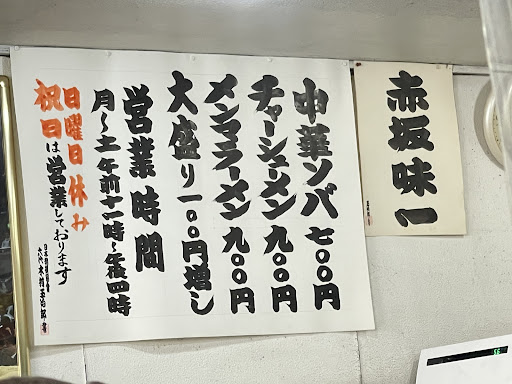 赤坂味一
中華ソバ 七〇〇円
チャーシューメン 九〇〇円
メンマラーメン 九〇〇円
大盛り一〇〇円増し
営業時間
月〜土 午前十一時〜午後四時
日曜日休み
祝日は営業しております